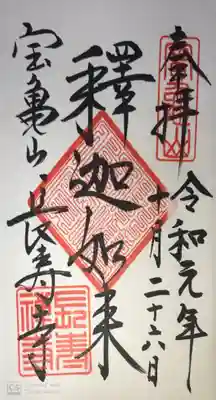 奉拝
令和元年
十月二十六日
釋迦如来
宝亀山長寿寺
CS